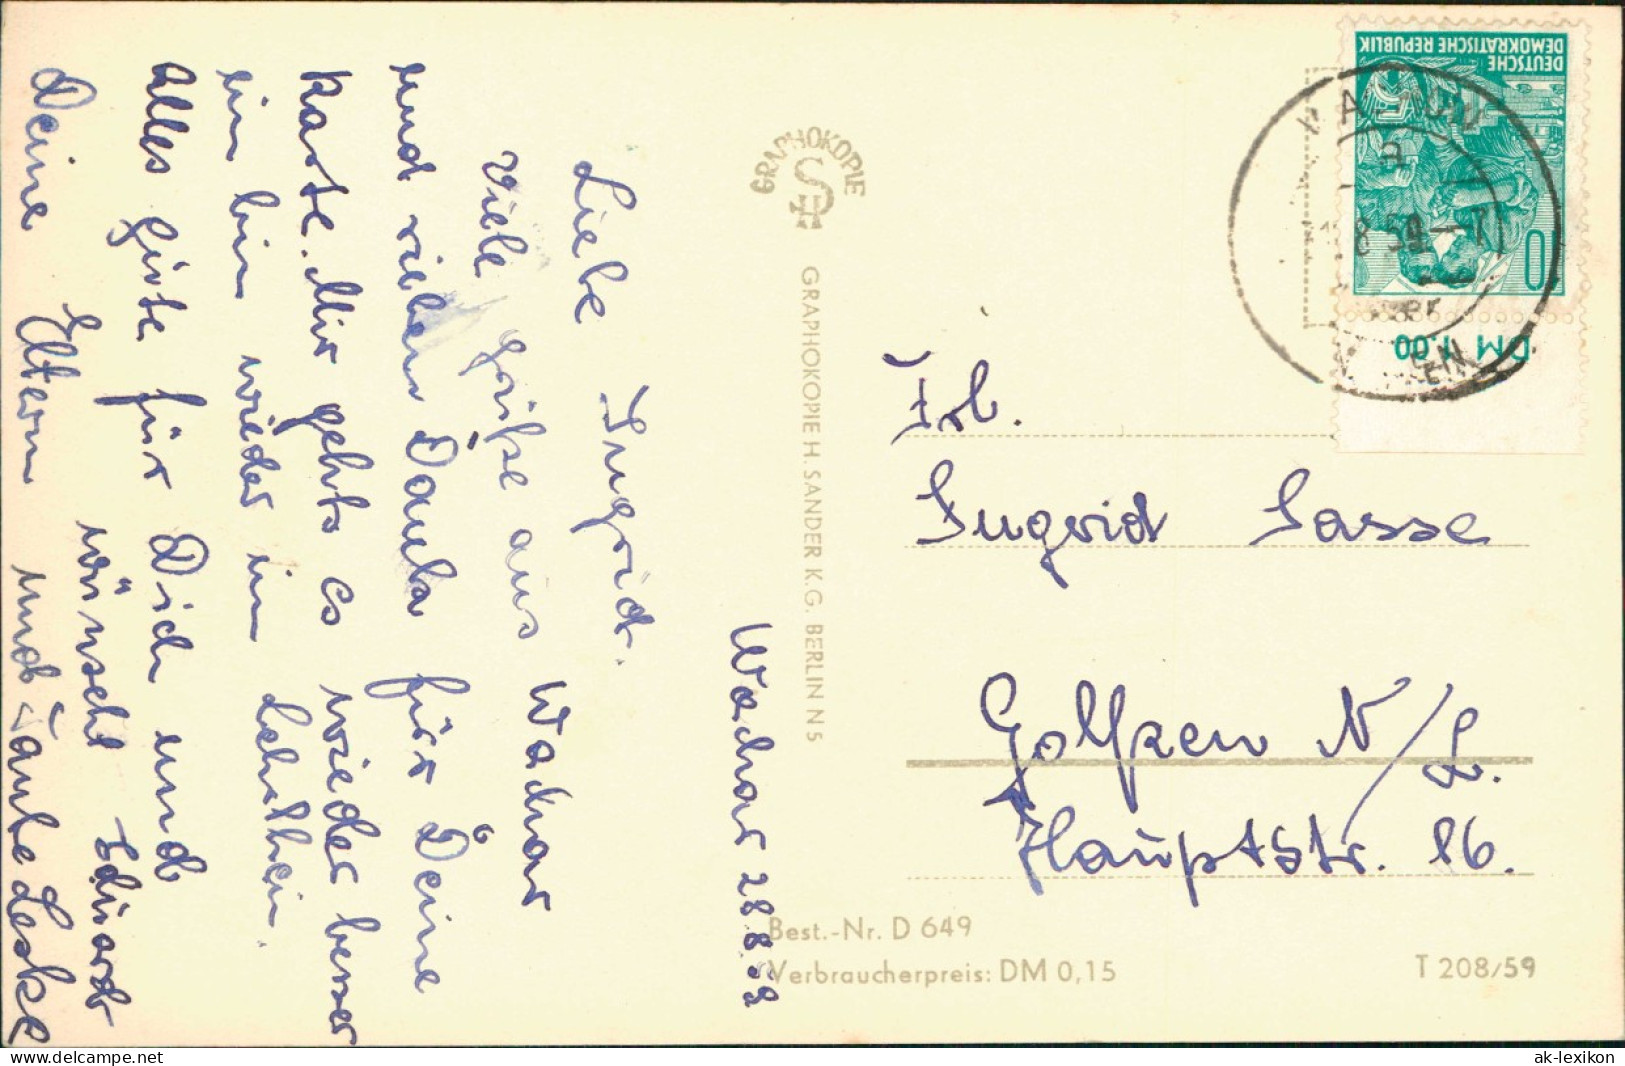 Wachow 28.8.59
Liebe Ingrid.
Viele Grüße aus Wachow
und vielen Dank für Deine
Karte. Mir gehts es wieder besser
bin wieder in
Alles gute für Dich und
Deine Eltern wünscht Eduard
und Tante Leske
GRAPHOKOPIE
GRAPHOKOPIE H. SANDER K.G. BERLIN N 5
DEUTSCHE
DEMOKRATISCHE REPUBLIK
10
DM 1.00
8.59—7
Frl.
Ingrid Sasse
Golßen N/L.
Hauptstr. 86.
Best.-Nr. D 649
Verbraucherpreis: DM 0,15
T 208/59
ak-lexikon
www.delcampe.net